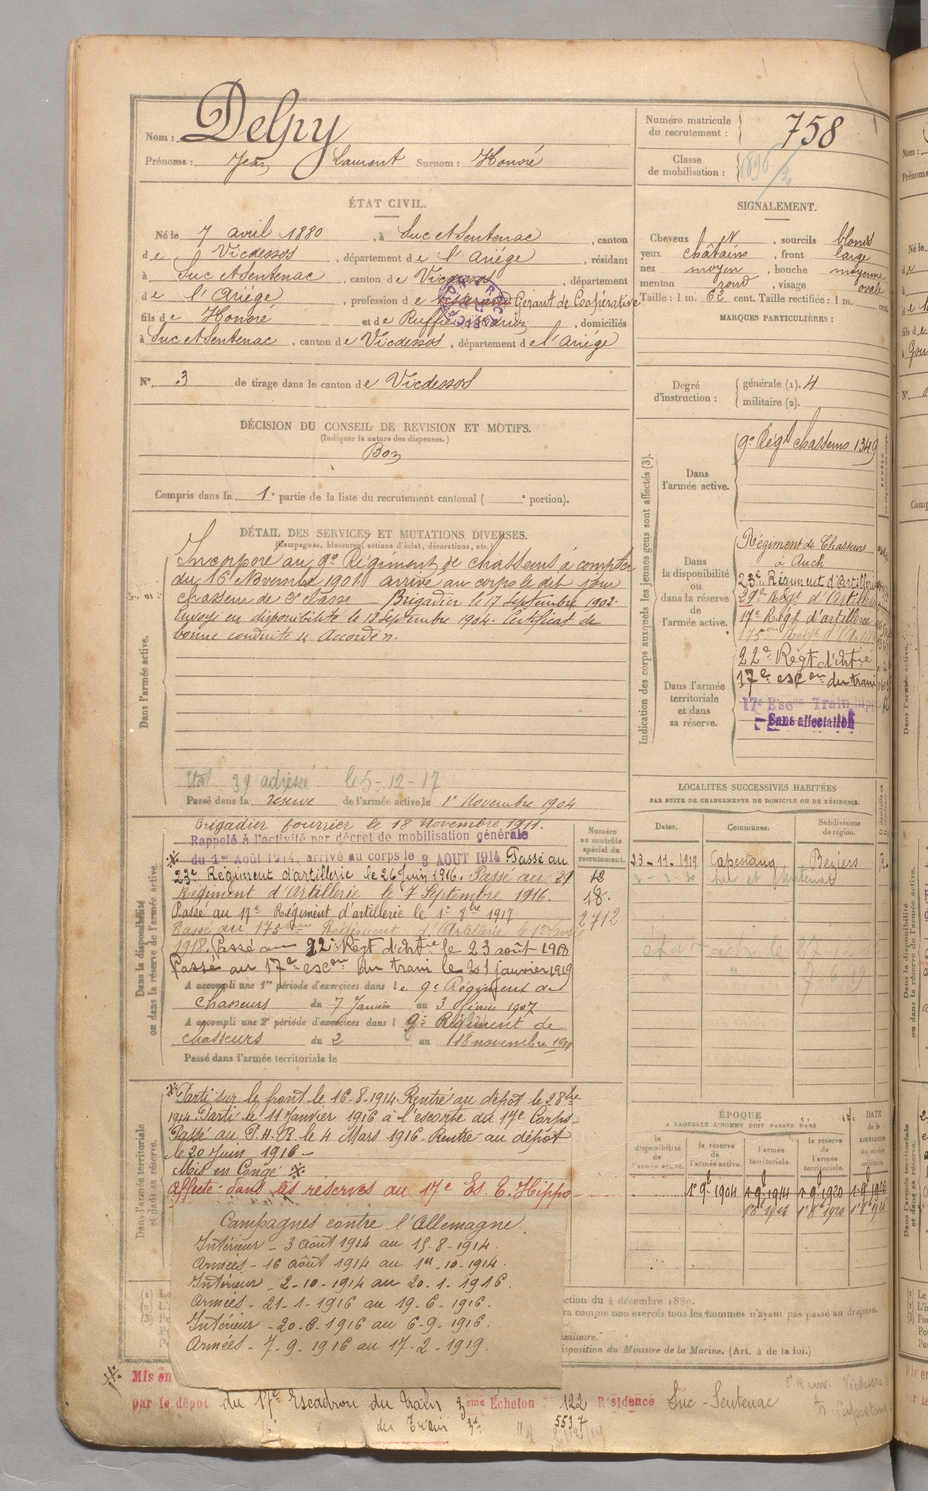 Nom : Delpy
Prénoms : Jean Laurent Surnom : Honoré
Numéro matricule
du recrutement : 758
Classe
de mobilisation : 1896
ÉTAT CIVIL.
Né le 7 avril 1880, à Suc et Sentenac, canton
de Vicdessos, département de l'Ariége, résidant
à Suc et Sentenac, canton de Vicdessos, département
de l'Ariége, profession de Gérant de Coopérative
fils de Honoré et de Ruffié, domiciliés
à Suc et Sentenac, canton de Vicdessos, département de l'Ariége
N° 3 de tirage dans le canton de Vicdessos
SIGNALEMENT.
Cheveux, sourcils blonds
yeux châtains, front large
nez moyen, bouche moyenne
menton rond, visage ovale
Taille : 1 m. 62 cent. Taille rectifiée : 1 m. cent.
MARQUES PARTICULIÈRES :
Degré
d'instruction :
générale (1). 4
militaire (2).
DÉCISION DU CONSEIL DE REVISION ET MOTIFS.
(Indiquer la nature des dispenses.)
Bon
Compris dans la 1e partie de la liste du recrutement cantonal ( e portion).
DÉTAIL DES SERVICES ET MUTATIONS DIVERSES.
(Campagnes, blessures, actions d'éclat, décorations, etc.)
Dans l'armée active.
Incorporé au 9e Régiment de chasseurs à compter
du 16 Novembre 1901 arrivé au corps le dit jour
chasseur de 2e classe Brigadier le 17 septembre 1902.
Envoyé en disponibilité le 18 septembre 1904. Certificat de
bonne conduite "Accordé".
Etat 39 adressé le 5-12-17
Passé dans la réserve de l'armée active le 1er Novembre 1904
Indication des corps auxquels les jeunes gens sont affectés (3).
Dans
l'armée active.
9e Régt chasseurs 1349
Dans
la disponibilité
ou
dans la réserve
de
l'armée active.
Régiment de Chasseurs
à Auch
23e Régiment d'artillerie
17e Régt d'artillerie
175me Régt d'Artil
22e Régt d'artie
17e escon du train
Dans l'armée
territoriale
et dans
sa réserve.
17e Escon Train
Sans affectation
Dans la disponibilité
ou dans la réserve de l'armée active.
Brigadier fourrier le 18 novembre 1911.
Rappelé à l'activité par décret de mobilisation générale
du 1er Août 1914, arrivé au corps le 3 AOUT 1914 Passé au
23e Régiment d'artillerie le 26 Juin 1916. Passé au
Régiment d'Artillerie le 7 Septembre 1916.
Passé au 17e Régiment d'artillerie le 1er 1917
Passé au 175me Régiment d'Artillerie le 1er
1918. Passé au 22e Régt d'Artie le 23 août 1918
Passé au 17e escon du train le 21 janvier 1919
A accompli une 1re période d'exercices dans le 9e Régiment de
chasseurs du 7 Janvier au 3 février 1907
A accompli une 2e période d'exercices dans le 9e Régiment de
chasseurs du 2 au 18 novembre
Passé dans l'armée territoriale le
Numéro
au contrôle
spécial du
recrutement.
18.
2712
LOCALITÉS SUCCESSIVES HABITÉES
PAR SUITE DE CHANGEMENTS DE DOMICILE OU DE RÉSIDENCE.
Dates. Communes. Subdivisions
de région.
23-11-1919 Capestang Béziers
Dans l'armée territoriale
et dans sa réserve.
Parti sur le front le 16-8-1914 Rentré au dépôt le
1914 Parti le 11 Janvier 1916 à l'escorte du 17e Corps
Passé au P.H.R. le 4 Mars 1916. Rentré au dépôt
le 20 Juin 1916 -
Mis en Congé
Affecté dans les réserves au 17e Es. T. Hippo
ÉPOQUE
A LAQUELLE L'HOMME DOIT PASSER DANS
la
disponibilité
de
l'armée active.
la réserve
de
l'armée active.
l'armée
territoriale.
la réserve
de
l'armée
territoriale.
DATE
1er 9e 1904 1er 9e 1914 1er 9e 1920 1er 9e 1926
Campagnes contre l'Allemagne
Intérieur - 3 août 1914 au 15-8-1914.
Armées - 16 août 1914 au 1er-10-1914.
Intérieur - 2-10-1914 au 20-1-1916
Armées - 21-1-1916 au 19-6-1916.
Intérieur - 20-6-1916 au 6-9-1916.
Armées - 7-9-1916 au 17-2-1919.
Mis en
par le dépôt du 17e Escadron du Train 3eme Echelon 122 Résidence Suc-Sentenac
du Train 5537